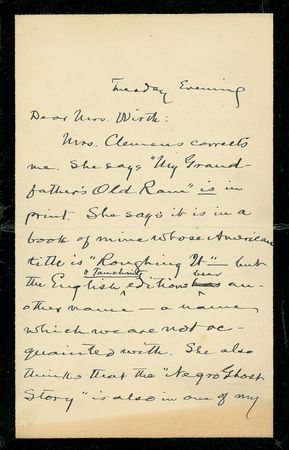 Tuesday Evening
Dear Mrs. Wirth:
Mrs. Clemens corrects
me. She says "My Grand-
father's Old Ram" is in
print. She says it is in a
book of mine whose American
title is "Roughing It" — but
& Tauchnitz bear
the English editions an-
other name — a name
which we are not ac-
quainted with. She also
thinks that the "Negro Ghost
Story" is also in one of my